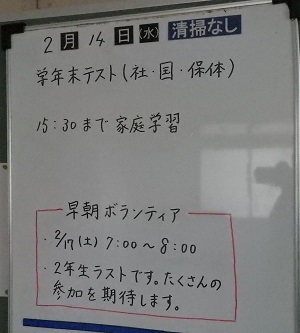 2月14日(水) 清掃なし
学年末テスト(社・国・保体)
15:30まで家庭学習
早朝ボランティア
・2/17(土) 7:00〜8:00
・2年生ラストです。たくさんの
参加を期待します。